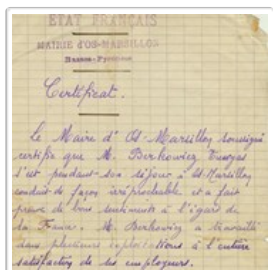 ETAT FRANÇAIS
MAIRIE d'OS-MARSILLON
Basses-Pyrénées
Certificat.
Le Maire d'Os-Marsillon soussigné
certifie que M. Berkowicz
s'est pendant son séjour à Os-Marsillon
conduit de façon irréprochable et a fait
preuve de bons sentiments à l'égard de
la France. M. Berkowicz a travaillé
dans plusieurs exploitations à l'entière
satisfaction de ses employeurs.